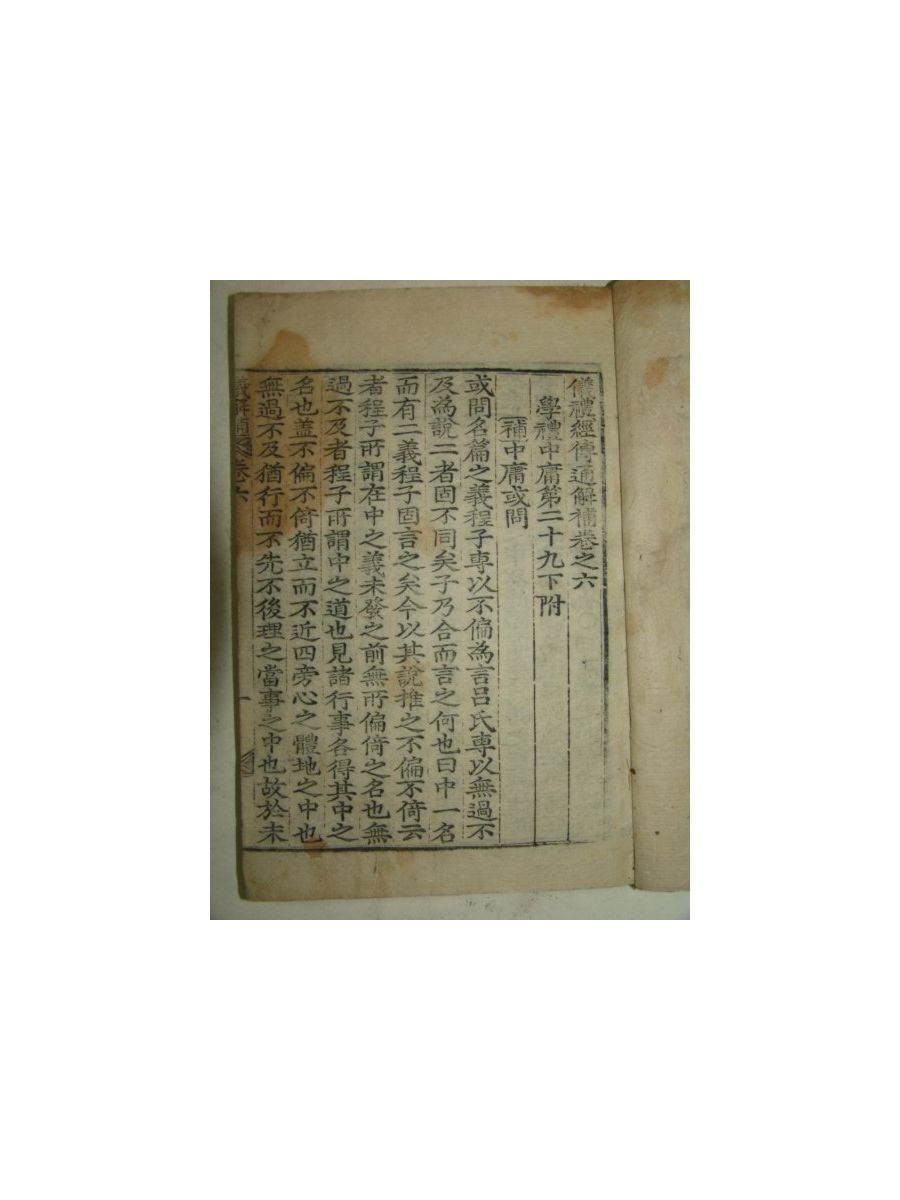 儀禮經傳通解補卷之六
學禮中庸第二十九下附
補中庸或問
或問名篇之義程子専以不偏為言呂氏専以無過不
及為說二者固不同矣子乃合而言之何也曰中一名
而有二義程子固言之矣今以其說推之不偏不倚云
者程子所謂在中之義未發之前無所偏倚之名也無
過不及者程子所謂中之道也見諸行事各得其中之
名也盖不偏不倚猶立而不近四旁心之體地之中也
無過不及猶行而不先不後理之當事之中也故於未
儀解補 卷六 一